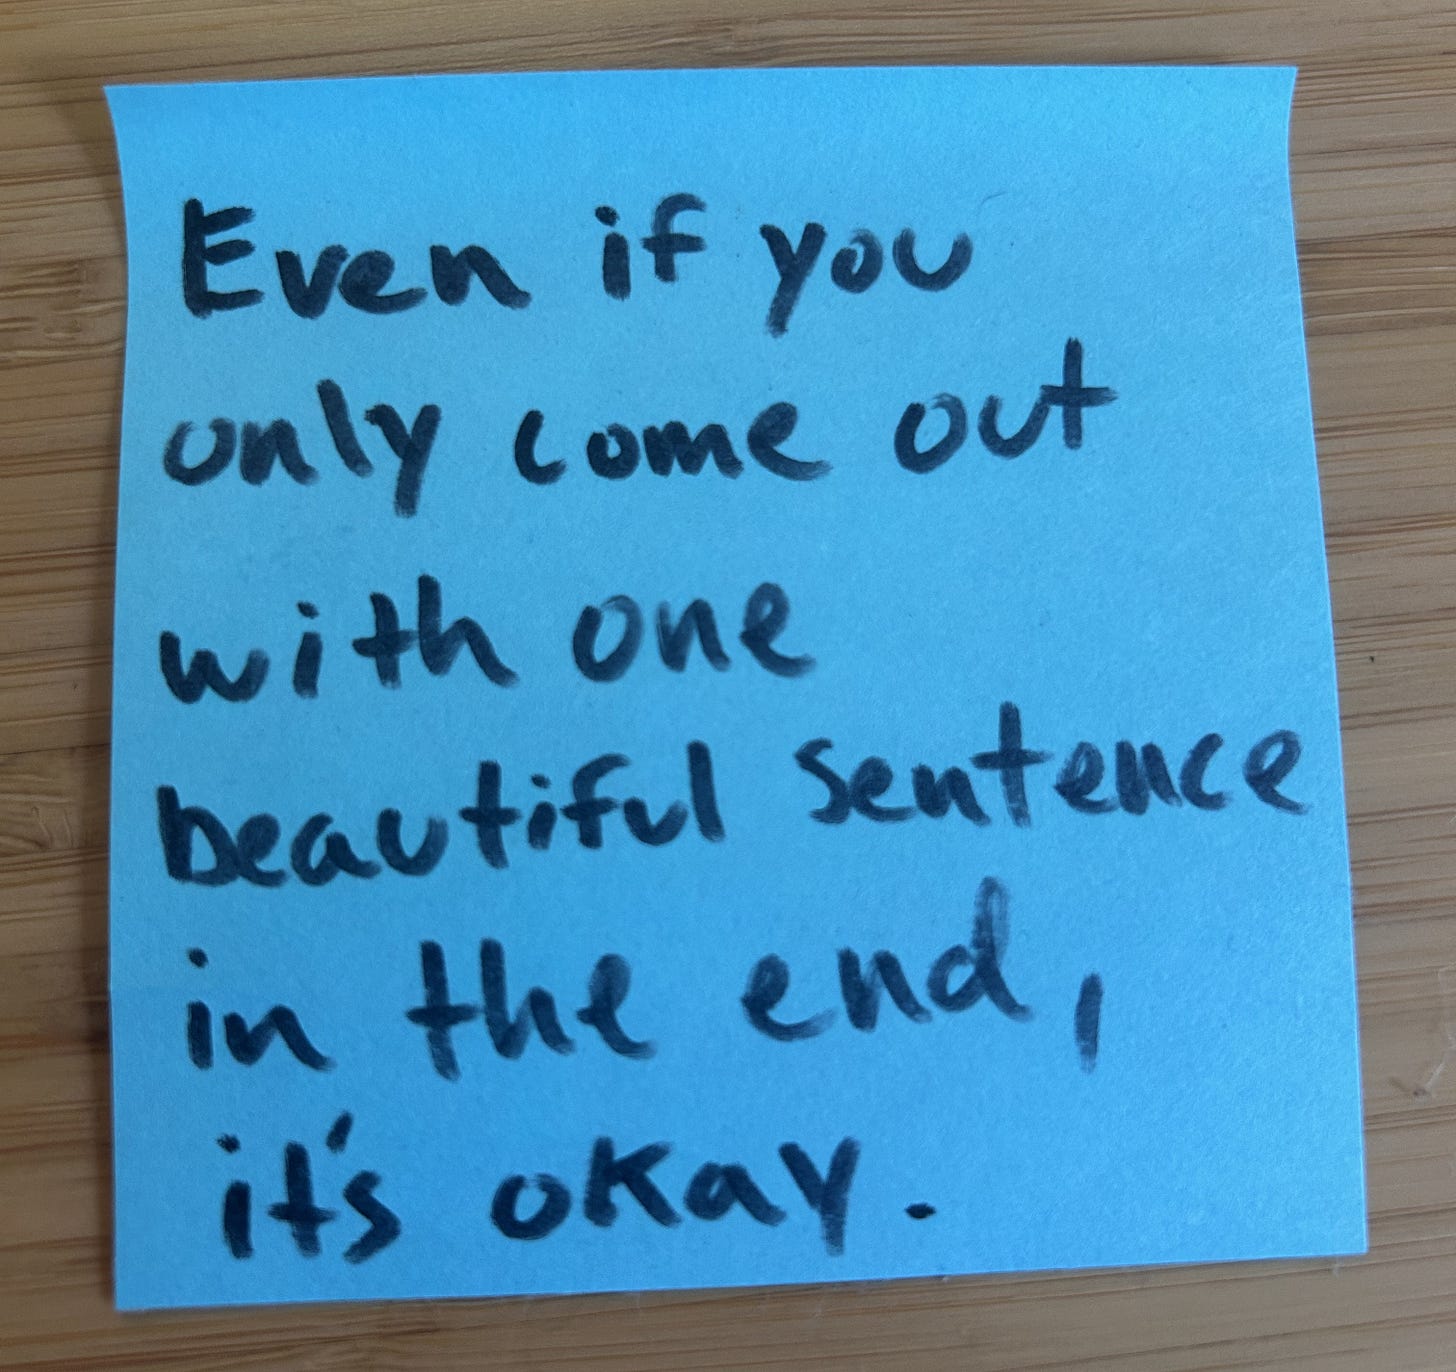 Even if you
only come out
with one
beautiful sentence
in the end,
it's okay.